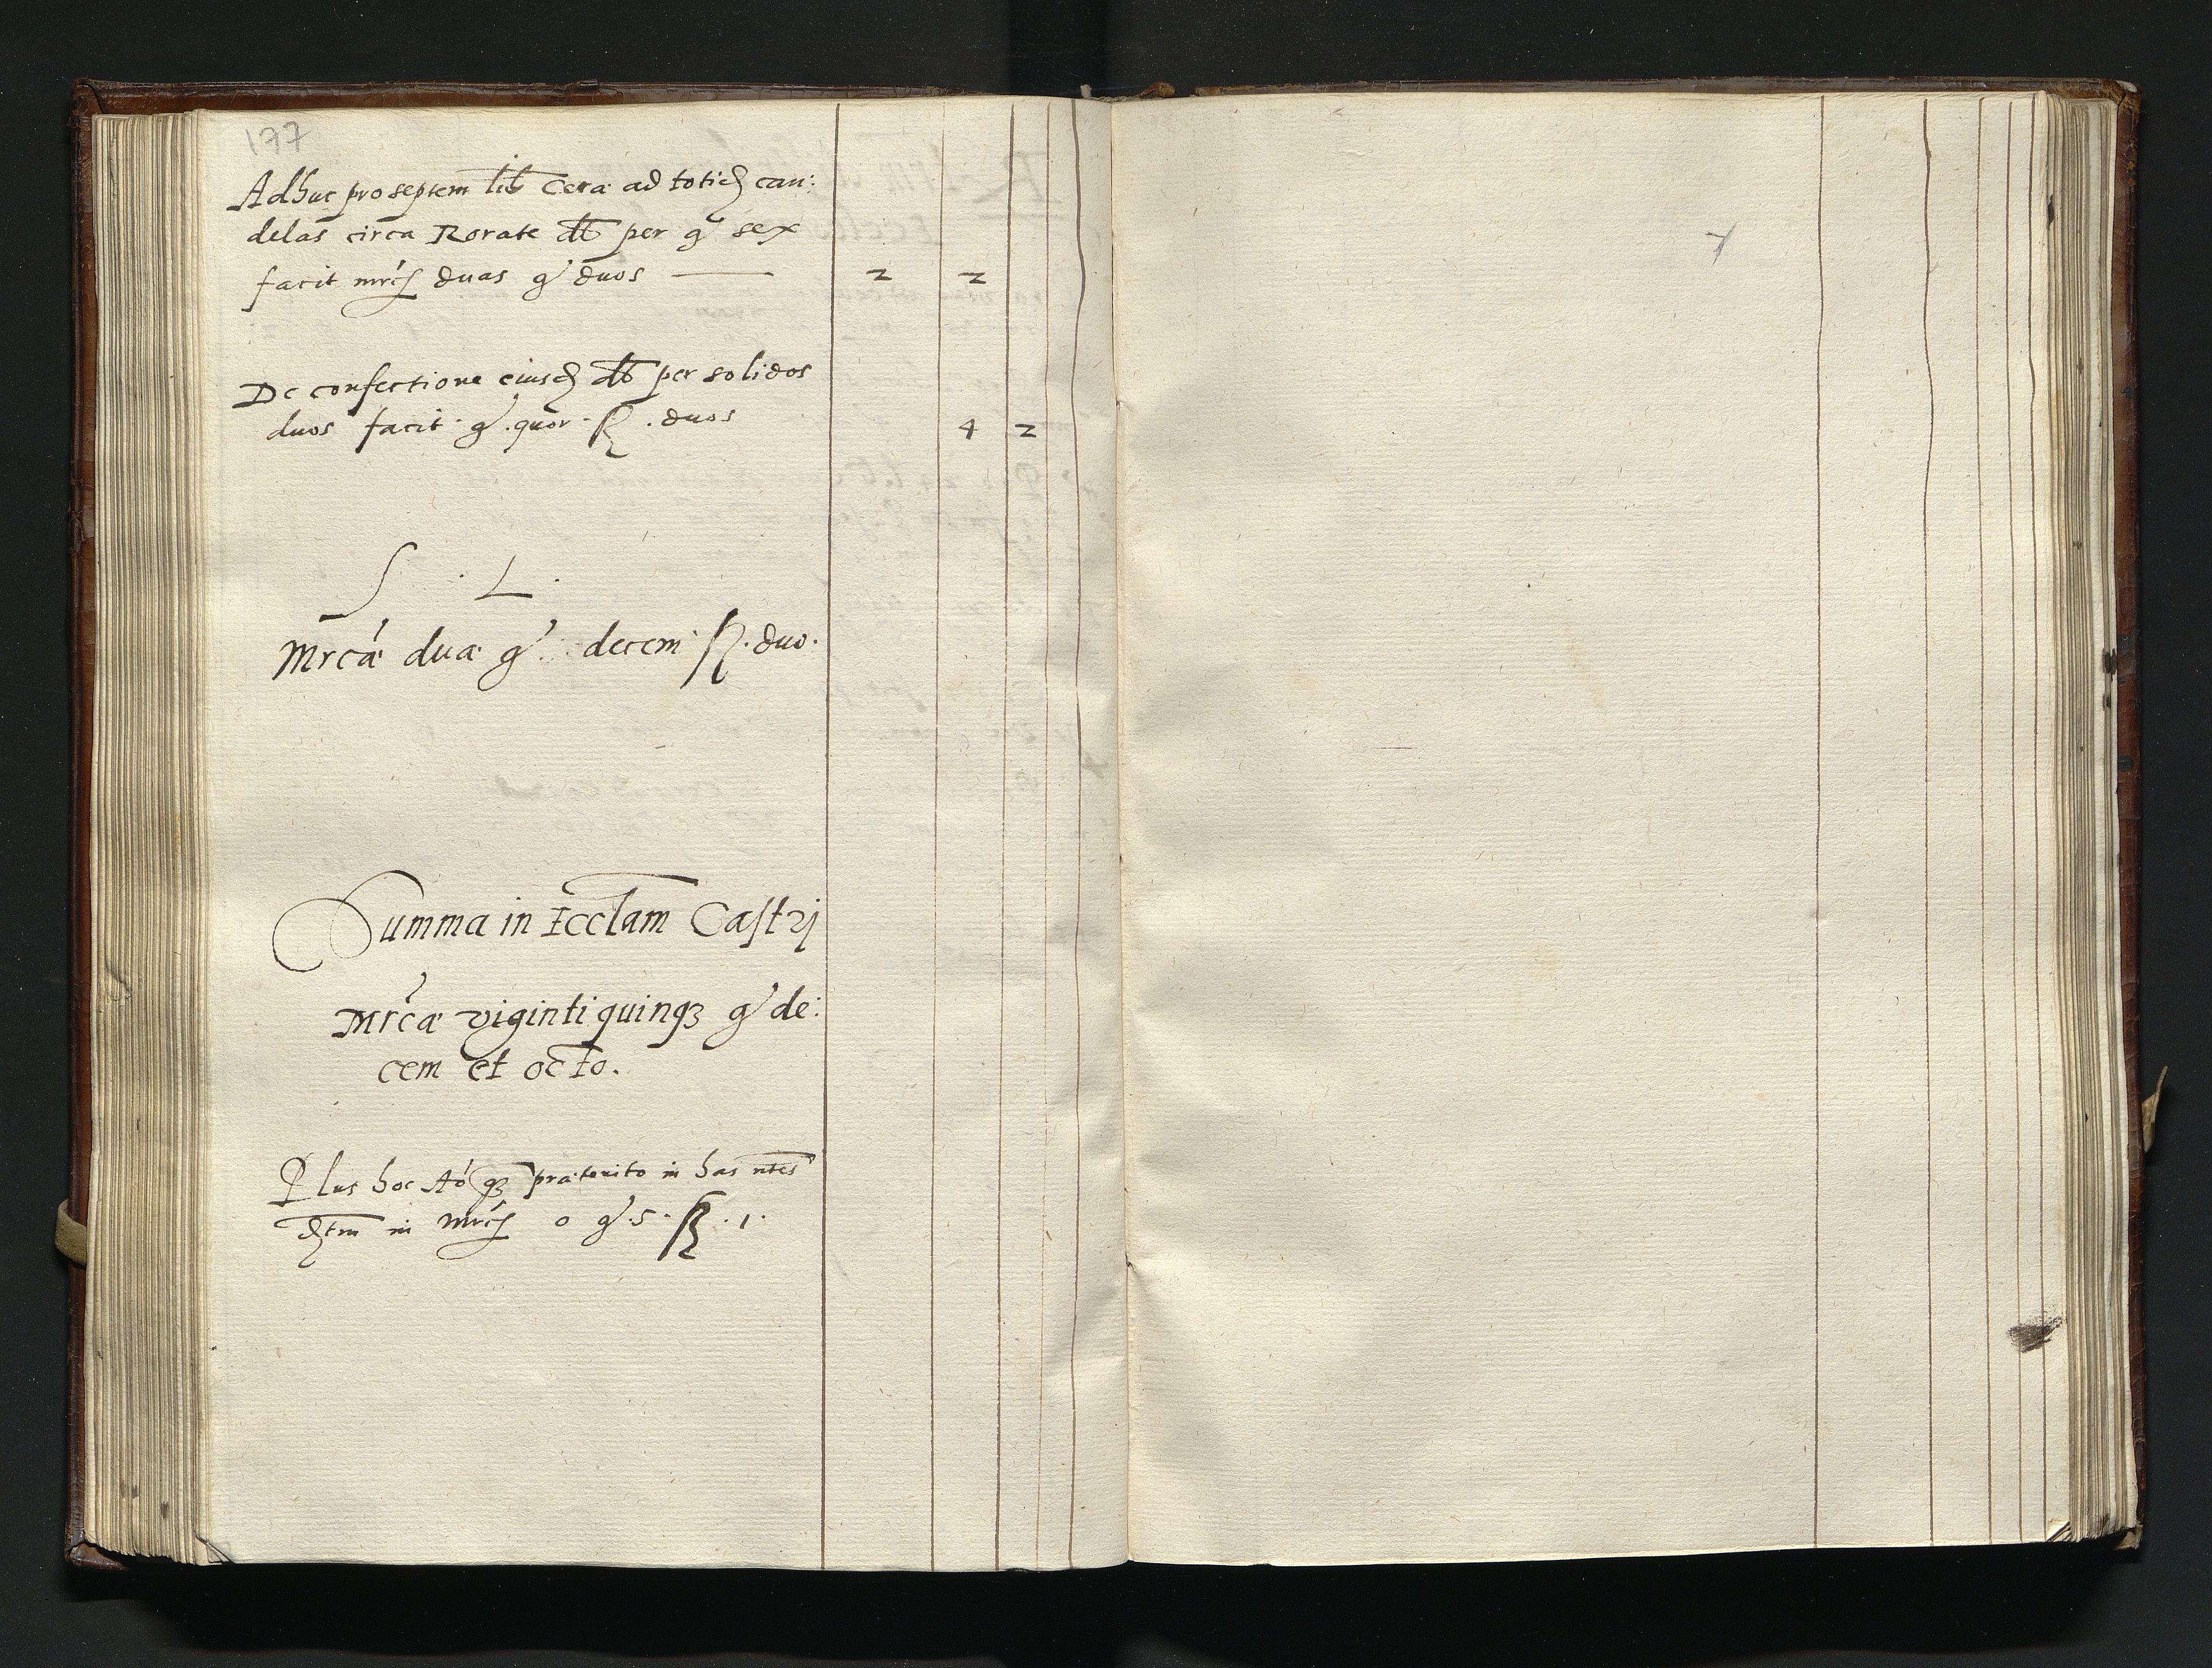 177
Adhuc pro septem lib Ceræ ad totid can:
delas circa Rorate dt per g sex
facit mrc duas g duos — 2 2
De confectione eiusd dt per solidos
duos facit g. quor ß. duos 4 2
S. L.
Mrcæ duæ g decem ß. duo.
Summa in Ecclam Castrj
Mrcæ viginti quinqȝ g de:
cem et octo.
Plus hoc Aó qȝ præterito in has ntes
in mrc 0 g. 5. ß. 1.